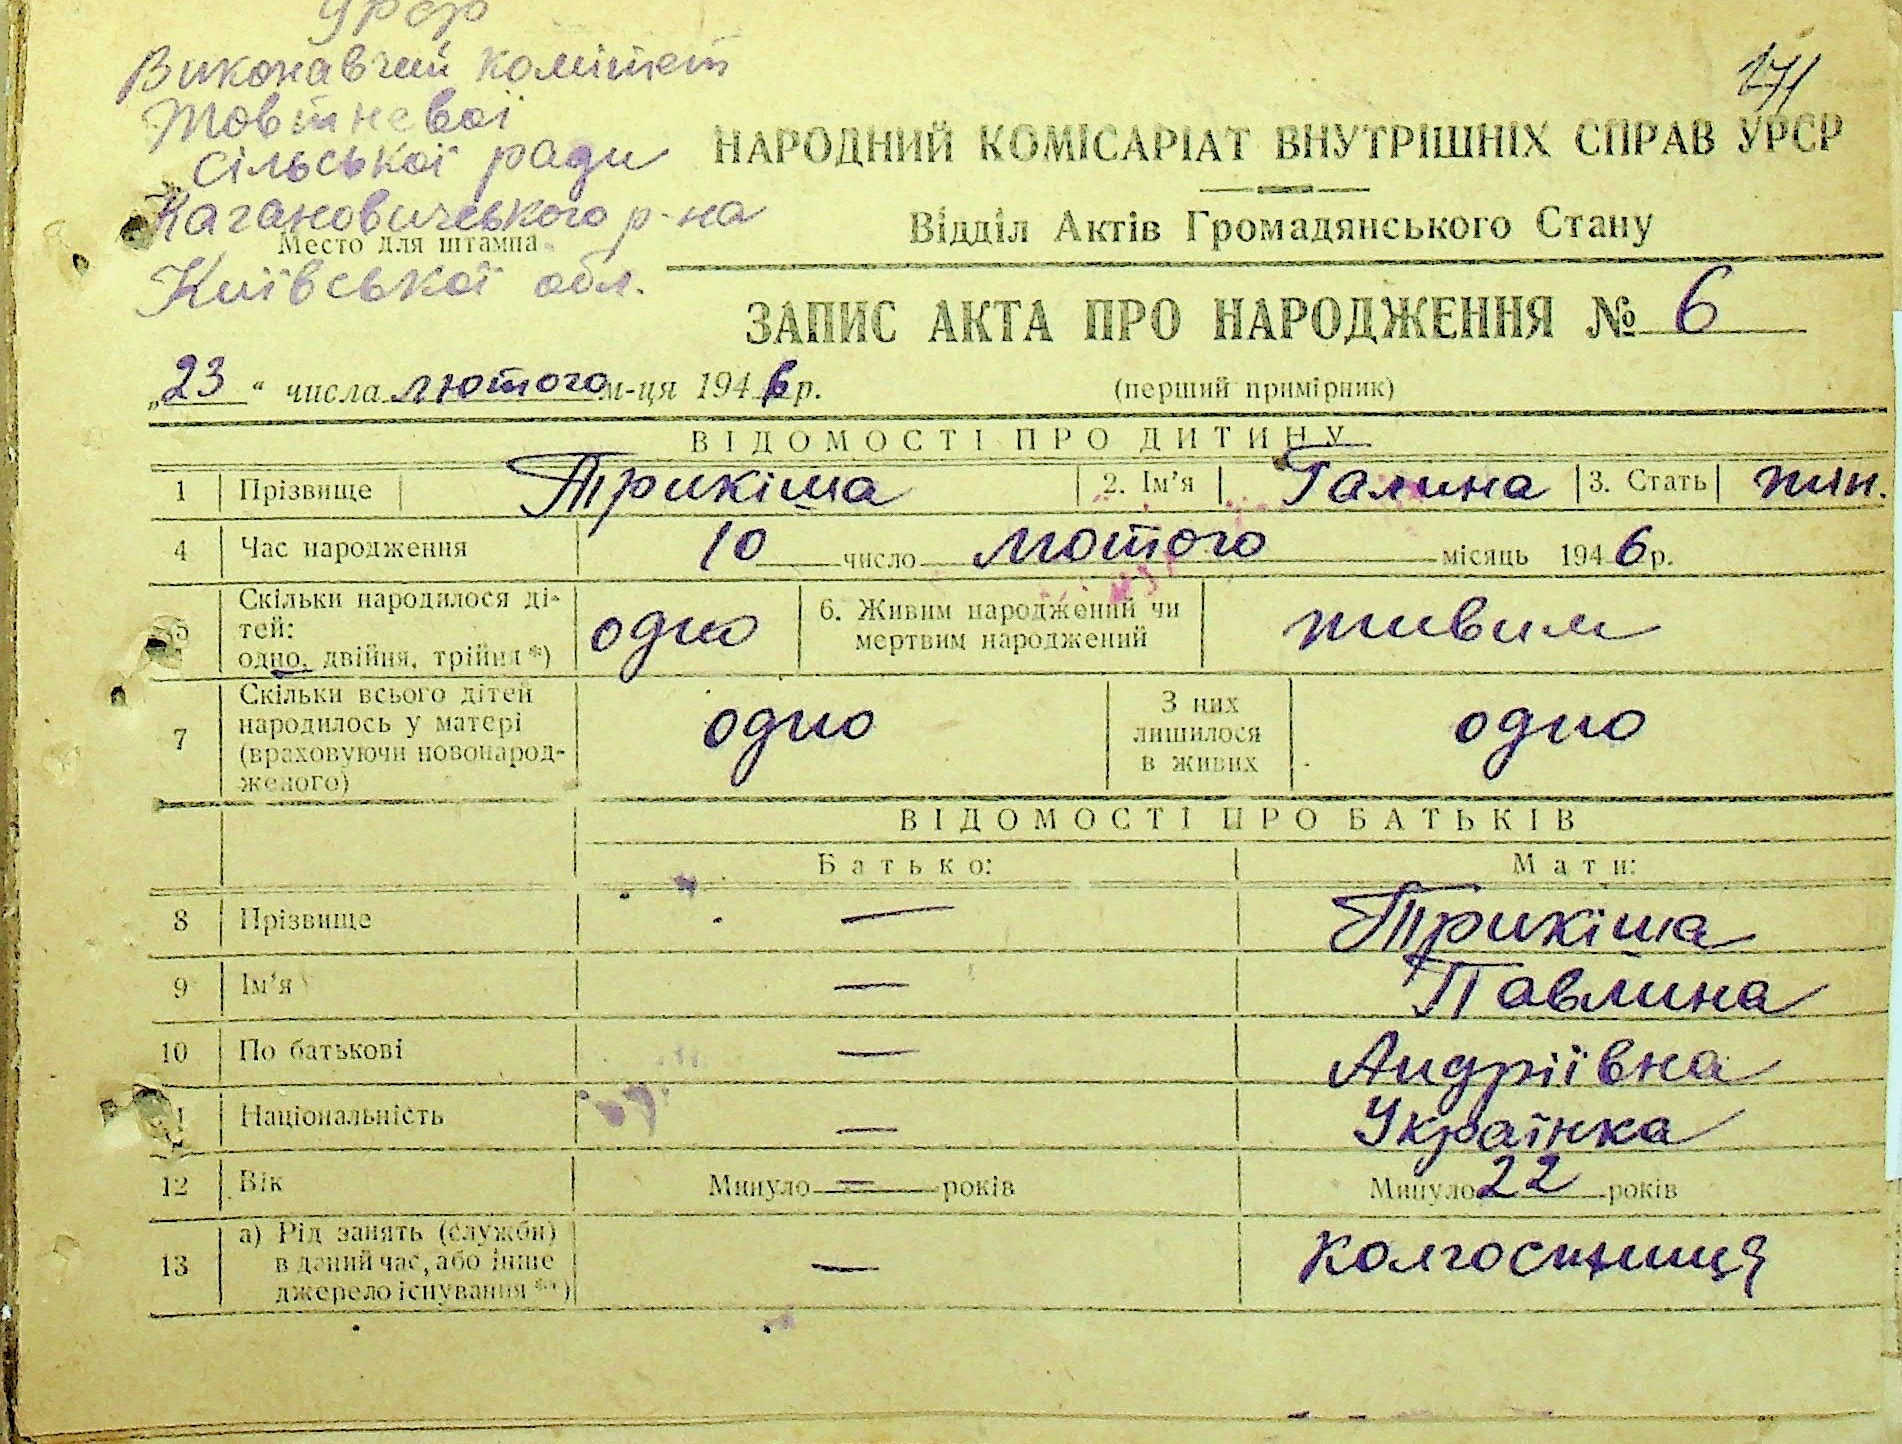 УРСР
Виконавчий комітет
Жовтневої
сільської ради
Кагановичського р-на
Место для штампа
Київської обл.
171
НАРОДНИЙ КОМІСАРІАТ ВНУТРІШНІХ СПРАВ УРСР
Відділ Актів Громадянського Стану
ЗАПИС АКТА ПРО НАРОДЖЕННЯ № 6
„23“ числа лютого м-ця 1946 р.
(перший примірник)
ВІДОМОСТІ ПРО ДИТИНУ
1 Прізвище Трикіша 2. Ім'я Галина 3. Стать жін.
4 Час народження 10 число лютого місяць 1946 р.
5 Скільки народилося ді-
тей:
одно, двійня, трійня*) одно 6. Живим народжений чи
мертвим народжений живим
7 Скільки всього дітей
народилось у матері
(враховуючи новонарод-
женого) одно З них
лишилося
в живих одно
ВІДОМОСТІ ПРО БАТЬКІВ
Батько: Мати:
8 Прізвище — Трикіша
9 Ім'я — Павлина
10 По батькові — Андріївна
11 Національність — Українка
12 Вік Минуло = років Минуло 22 років
13 а) Рід занять (служби)
в даний час, або інше
джерело існування**) — колгоспниця